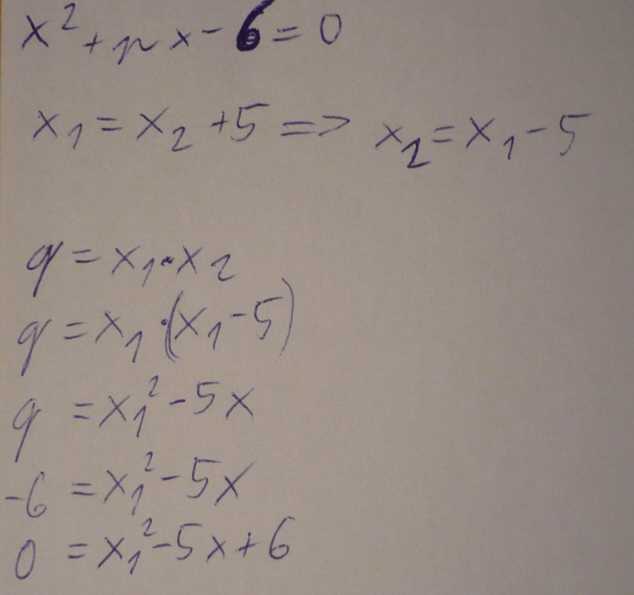 x² + px - 6 = 0
x₁ = x₂ + 5 => x₂ = x₁ - 5
q = x₁ · x₂
q = x₁ · (x₁ - 5)
q = x₁² - 5x
-6 = x₁² - 5x
0 = x₁² - 5x + 6